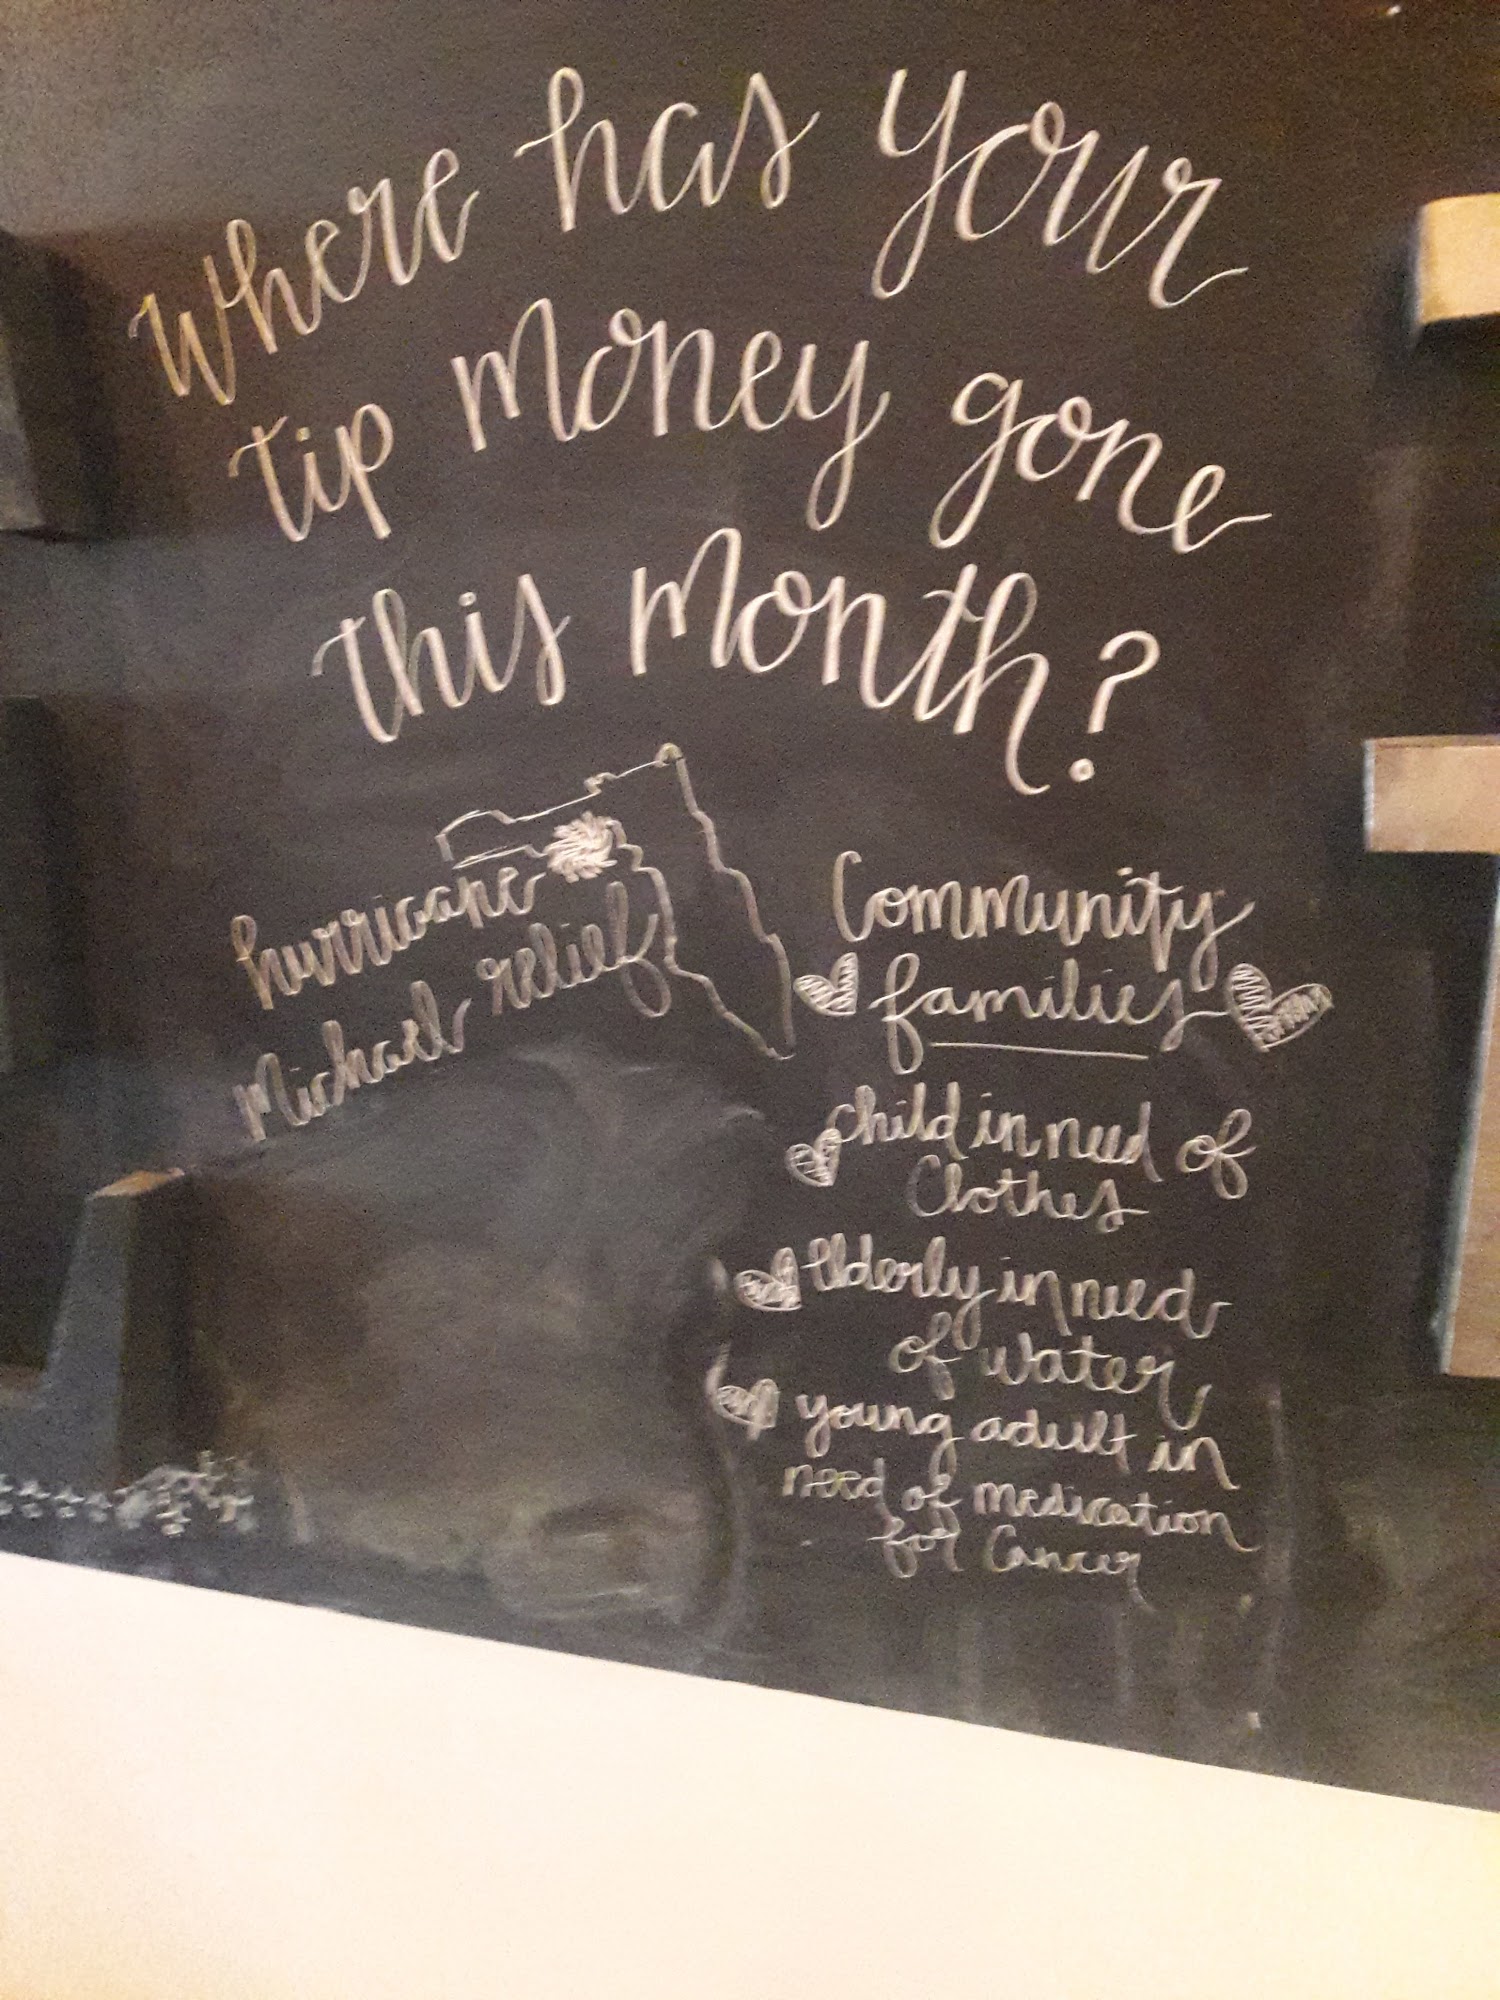 where has your
tip money gone
this month?
hurricane
Michael relief
Community
families
child in need of
Clothes
Elderly in need
of water
young adult in
need of medication
for Cancer